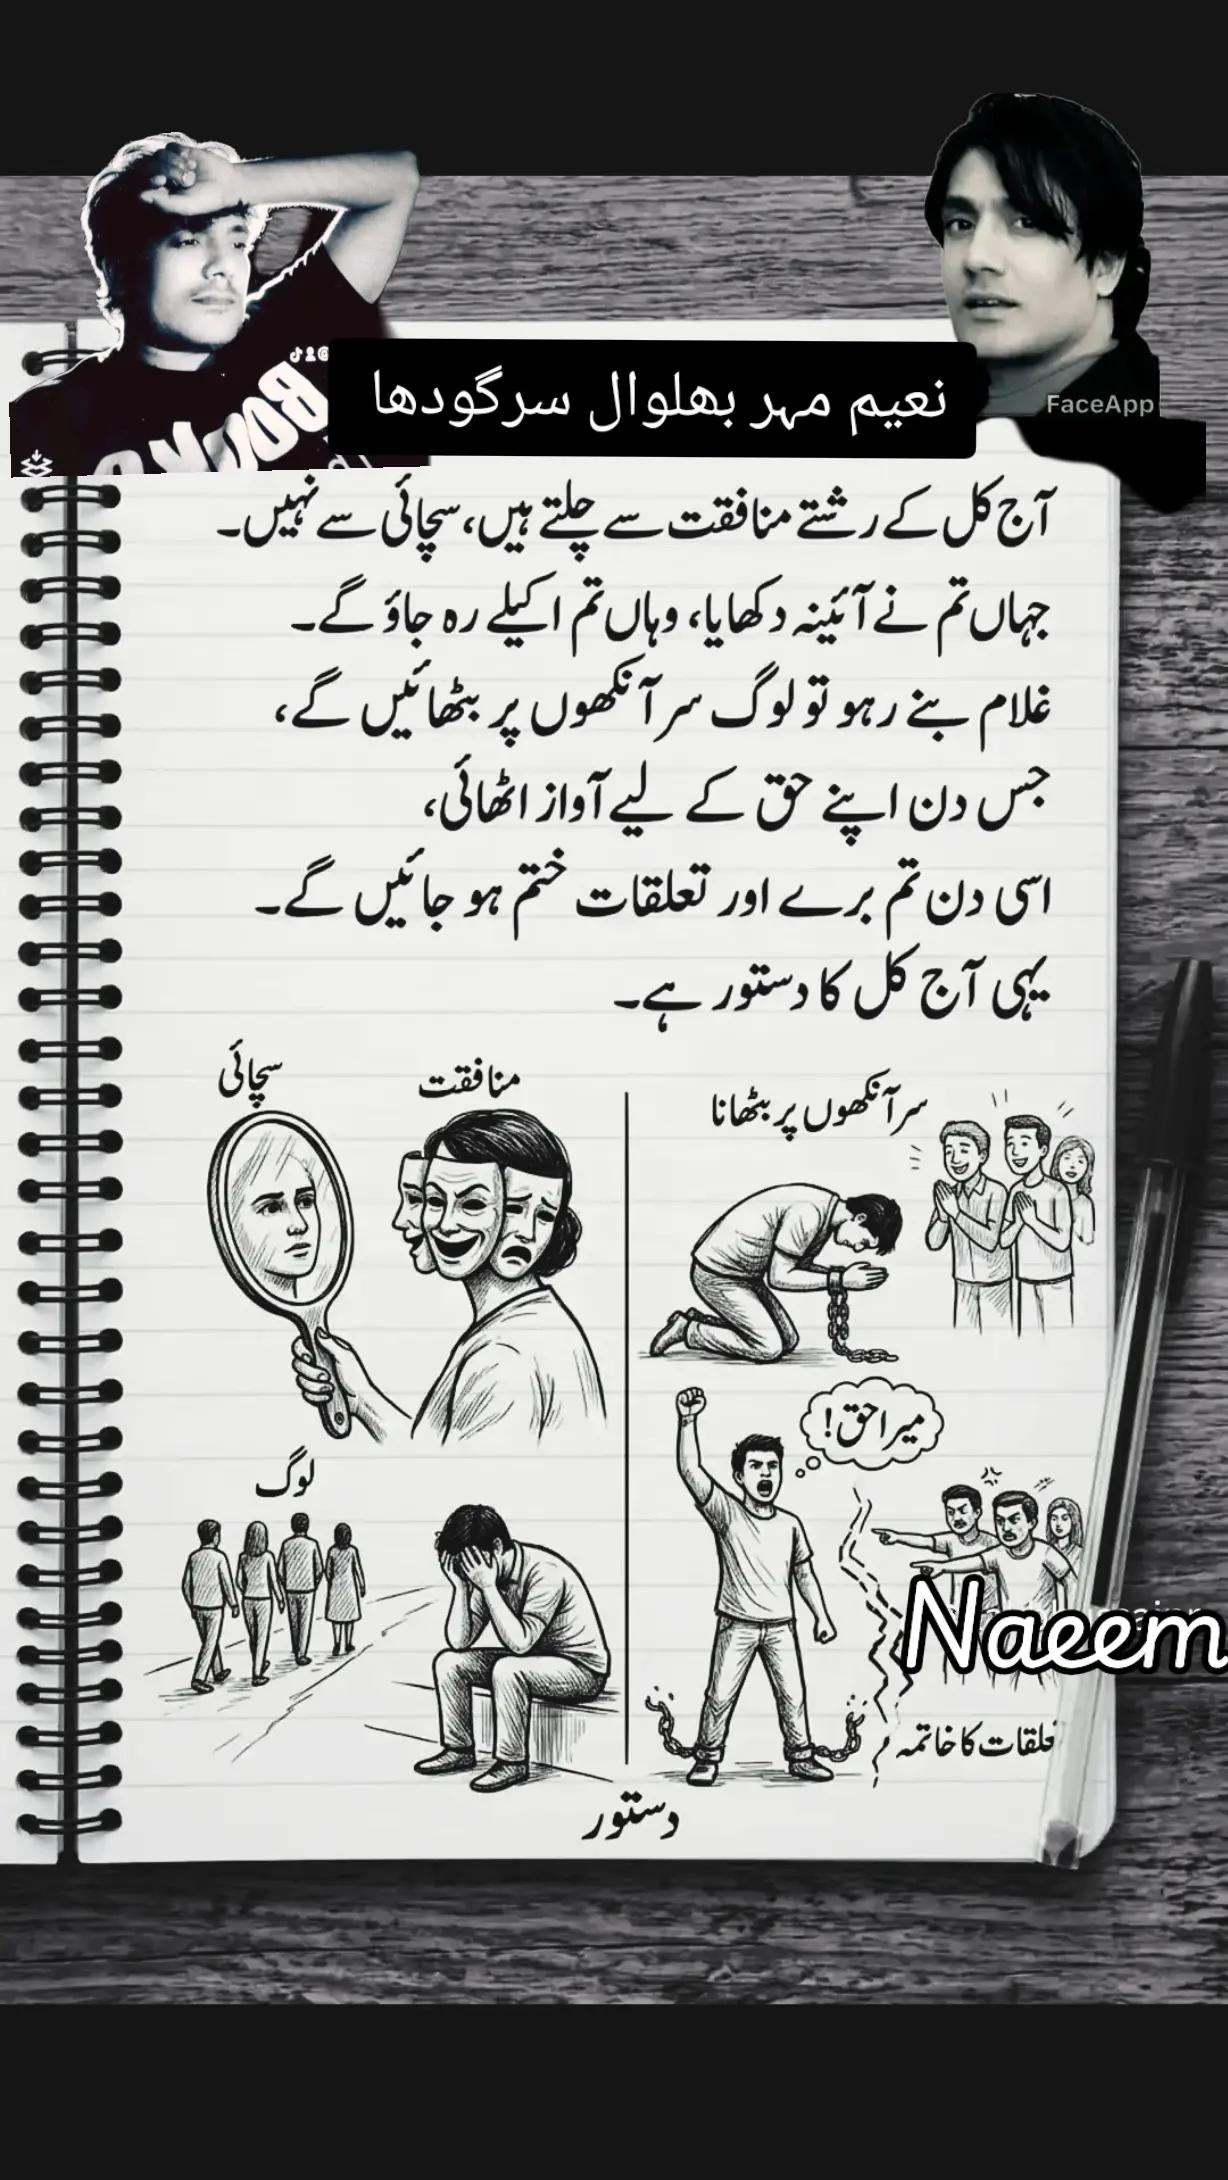 نعیم مہر بھلوال سرگودھا
FaceApp
آج کل کے رشتے منافقت سے چلتے ہیں، سچائی سے نہیں۔
جہاں تم نے آئینہ دکھایا، وہاں تم اکیلے رہ جاؤ گے۔
غلام بنے رہو تو لوگ سر آنکھوں پر بٹھائیں گے،
جس دن اپنے حق کے لیے آواز اٹھائی،
اسی دن تم برے اور تعلقات ختم ہو جائیں گے۔
یہی آج کل کا دستور ہے۔
سر آنکھوں پر بٹھانا
منافقت
سچائی
میرا حق!
لوگ
Naeem
تعلقات کا خاتمہ
دستور